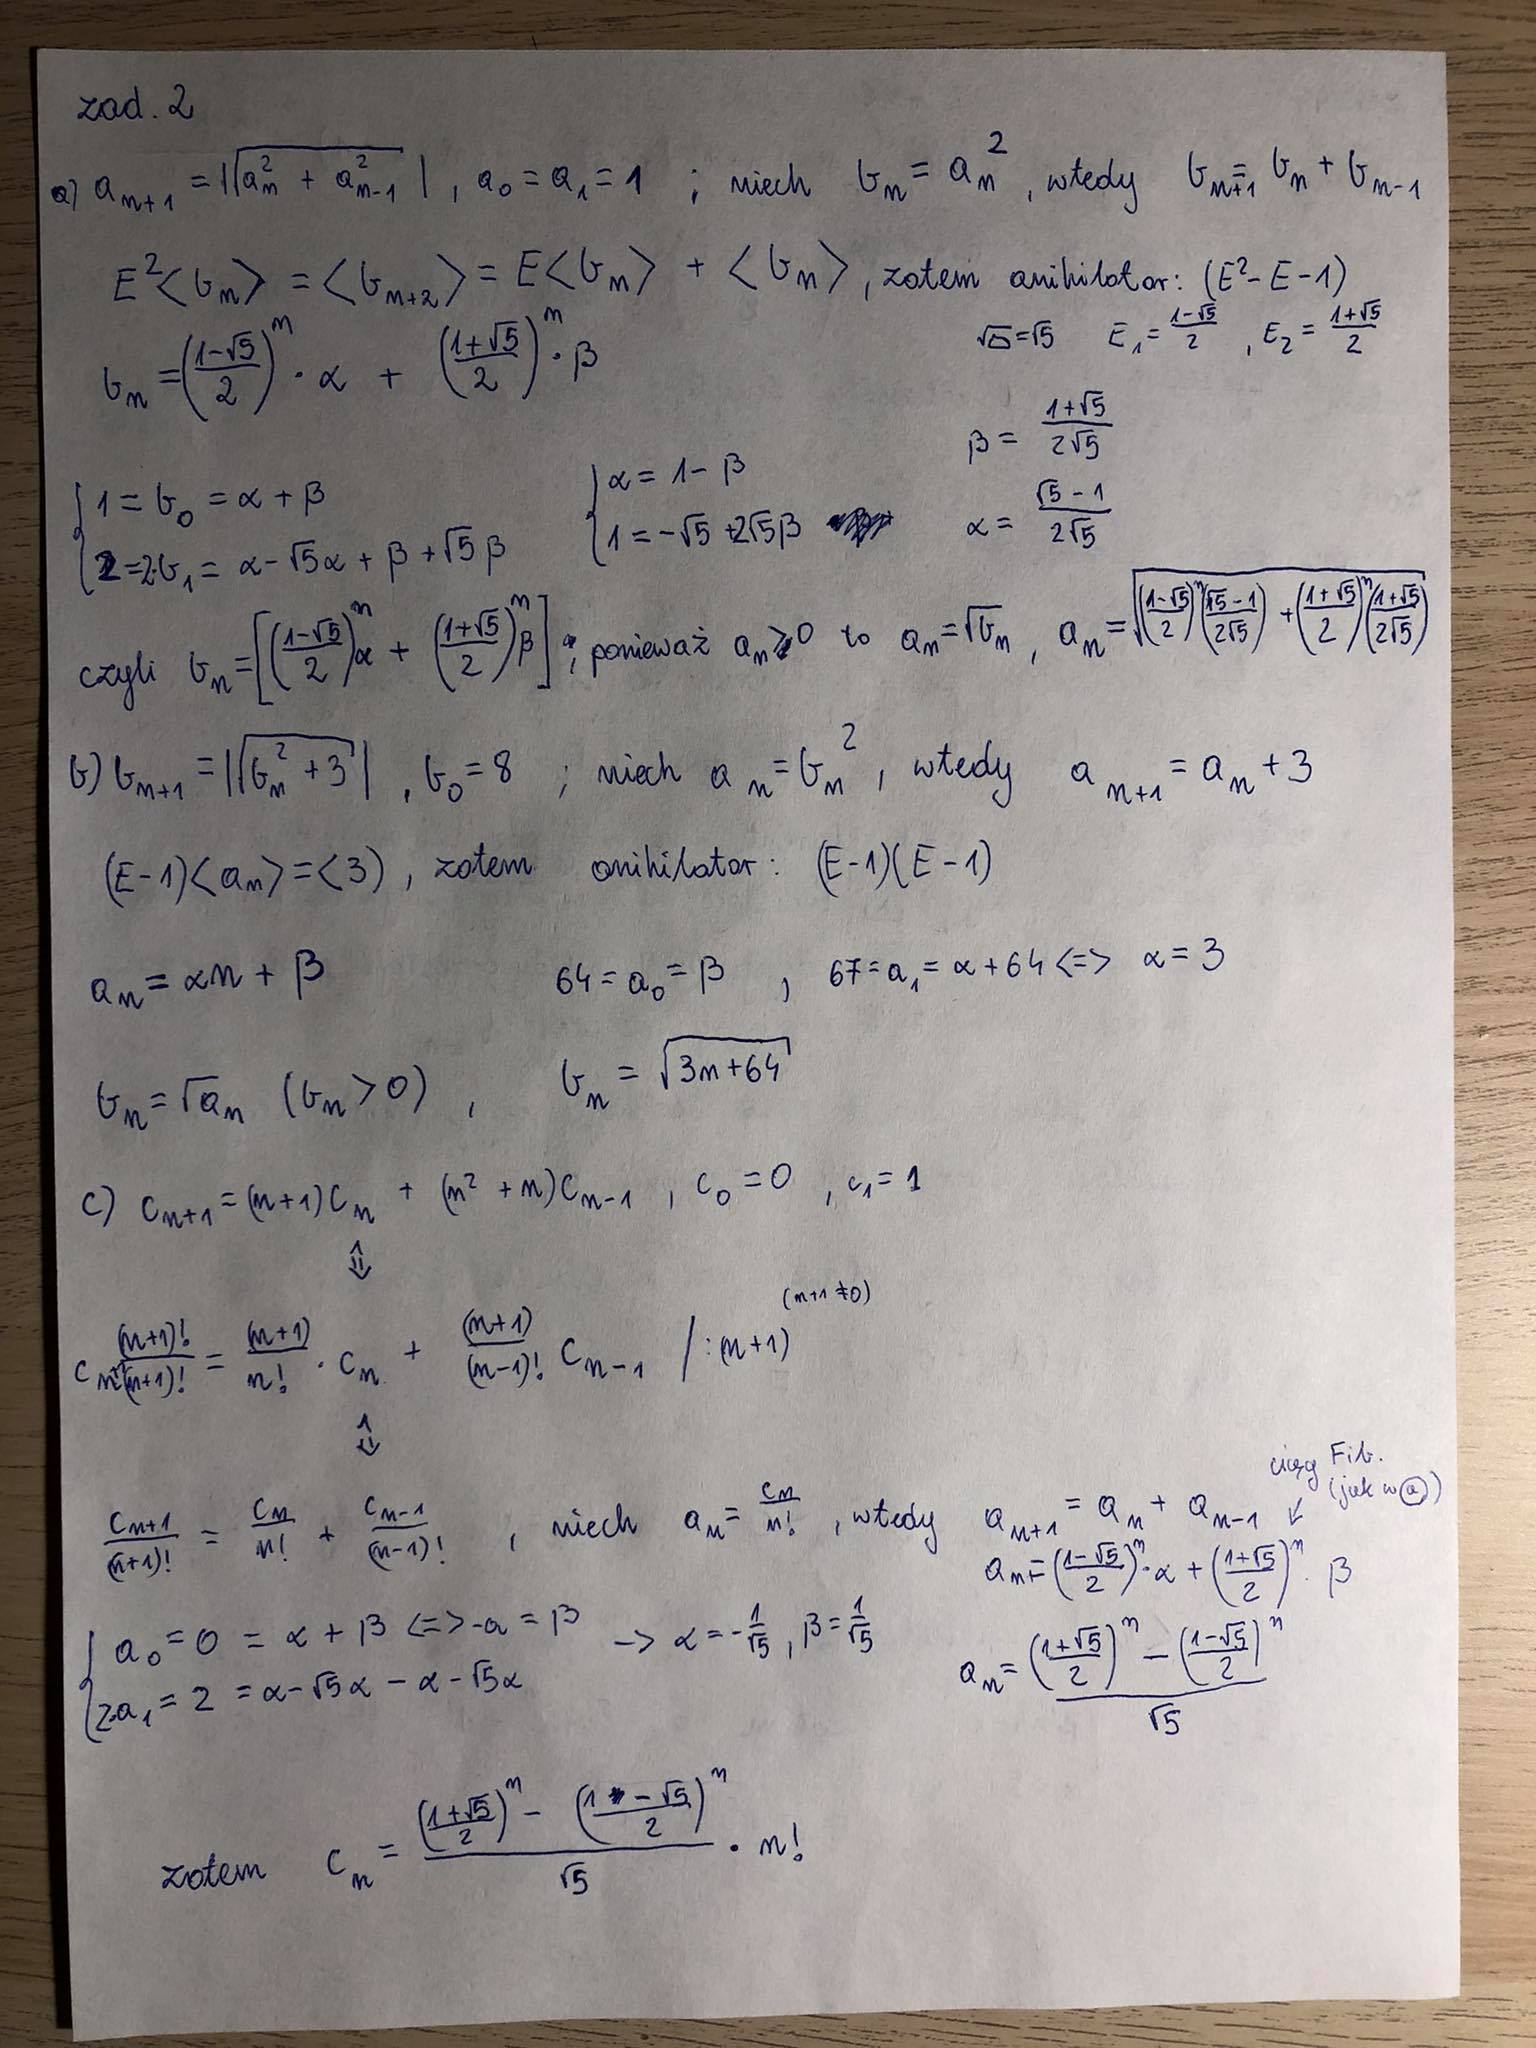 zad. 2
a) a_{n+1} = |√(a_n² + a_{n-1}²)|, a_0 = a_1 = 1 ; niech b_n = a_n², wtedy b_{n+1} = b_n + b_{n-1}
E²<b_n> = <b_{n+2}> = E<b_n> + <b_n>, zatem anihilator: (E² - E - 1)
√Δ = √5 E_1 = (1-√5)/2, E_2 = (1+√5)/2
b_n = ((1-√5)/2)^n · α + ((1+√5)/2)^n · β
β = (1+√5)/(2√5)
{ 1 = b_0 = α + β { α = 1 - β
α = (√5-1)/(2√5)
2 = 2·b_1 = α - √5α + β + √5β 1 = -√5 + 2√5β
czyli b_n = [((1-√5)/2)^n α + ((1+√5)/2)^n β] ; ponieważ a_n ≥ 0 to a_n = √b_n, a_n = √(((1-√5)/2)^n ((√5-1)/(2√5)) + ((1+√5)/2)^n ((1+√5)/(2√5)))
b) b_{n+1} = |√(b_n² + 3)|, b_0 = 8 ; niech a_n = b_n², wtedy a_{n+1} = a_n + 3
(E-1)<a_n> = <3), zatem anihilator: (E-1)(E-1)
a_n = αn + β 64 = a_0 = β , 67 = a_1 = α + 64 <=> α = 3
b_n = √a_n (b_n > 0) , b_n = √(3n+64)
c) c_{n+1} = (n+1)c_n + (n² + n)c_{n-1} , c_0 = 0 , c_1 = 1
⇕
(n+1 ≠ 0)
c_{n+1} (n+1)!/(n+1)! = (n+1)/n! · c_n + (n+1)/(n-1)! c_{n-1} / :(n+1)
⇕
ciąg Fib.
(jak w a)
c_{n+1}/(n+1)! = c_n/n! + c_{n-1}/(n-1)! , niech a_n = c_n/n! , wtedy a_{n+1} = a_n + a_{n-1}
a_n = ((1-√5)/2)^n · α + ((1+√5)/2)^n · β
{ a_0 = 0 = α + β <=> -α = β -> α = -1/√5, β = 1/√5
2·a_1 = 2 = α - √5α - α - √5α
a_n = (((1+√5)/2)^n - ((1-√5)/2)^n)/√5
zatem c_n = (((1+√5)/2)^n - ((1-√5)/2)^n)/√5 · n!